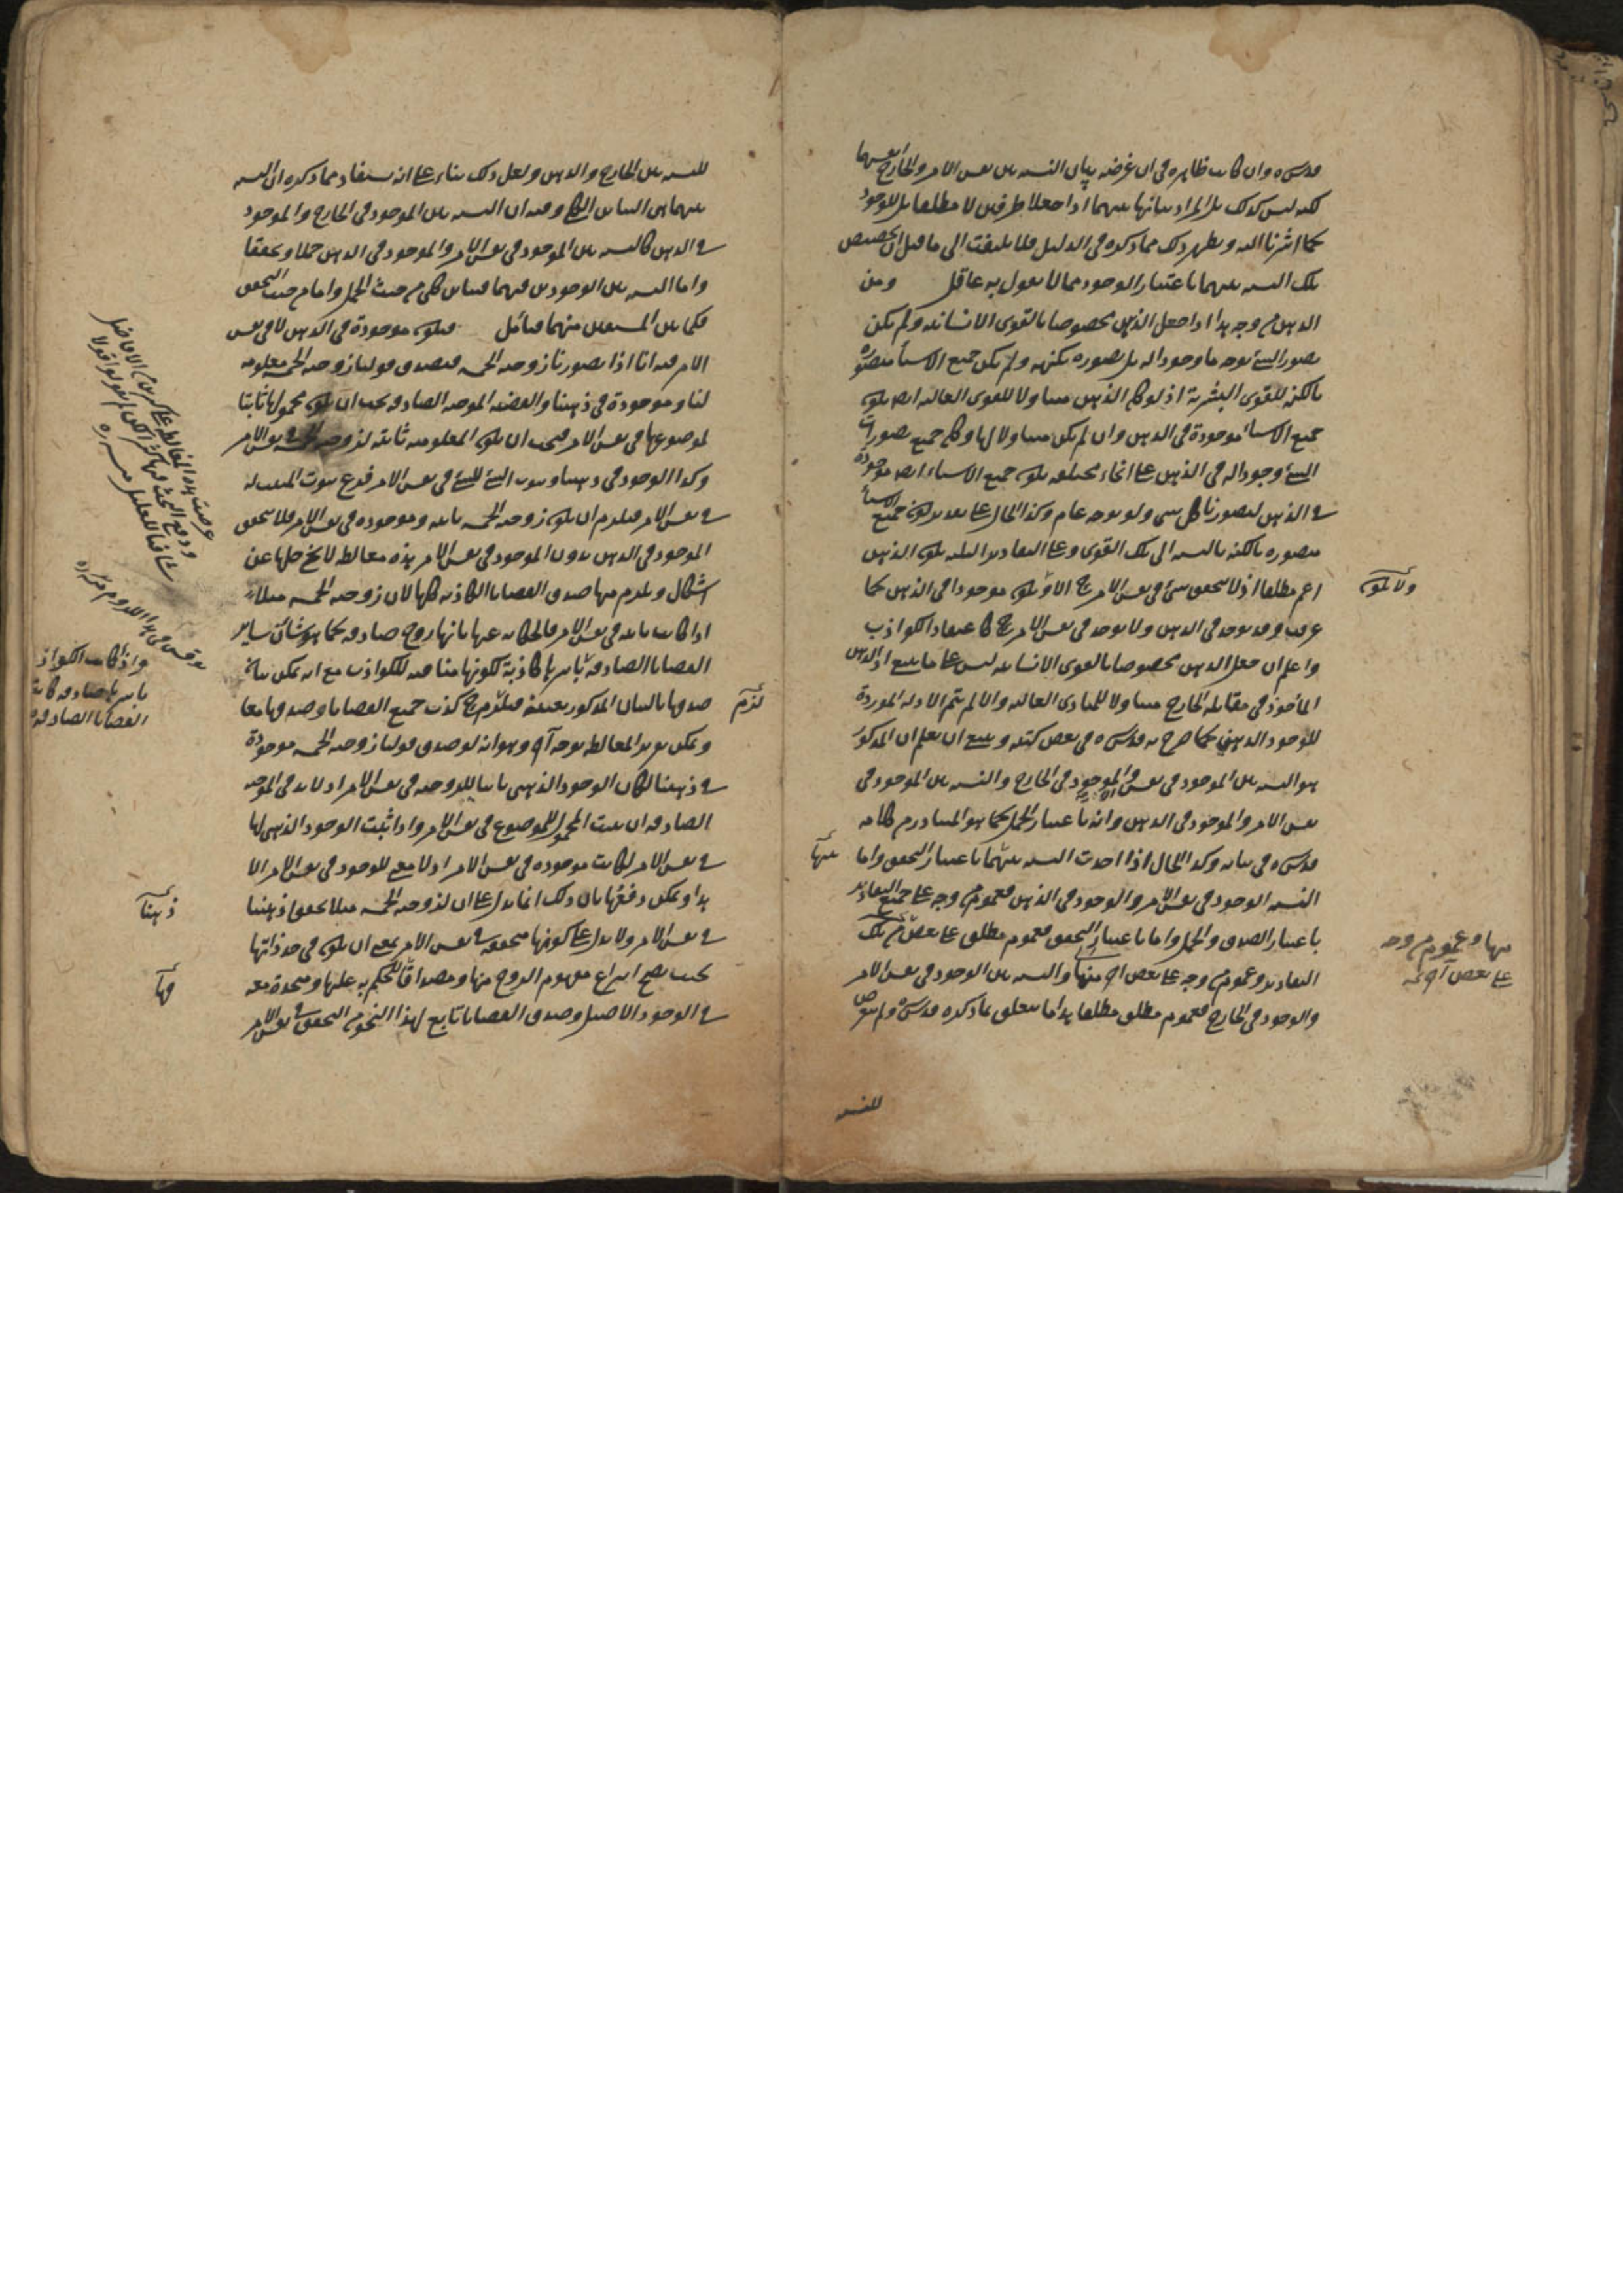 قدس سره وان كانت ظاهرة في ان غرضه بيان النسبة بين نفس الامر والخارج انفسهما
لكنه ليس كذلك بل المراد بيانها بينهما اذا جعلا ظرفين لا مطلقا بل للوجود
كما اشرنا اليه ويظهر ذلك مما ذكره في الدليل فلا يلتفت الى ما قيل ان تخصيص
تلك النسبة بينهما باعتبار الوجود مما لا يقول به عاقل ومن
الذهن من وجه هذا اذا جعل الذهن مخصوصا بالقوى الانسانية ولم يكن
تصور الشيء بوجه ما وجودا له بل تصوره بكنهه ولم يكن جميع الاشياء متصورة
بالكنه للقوى البشرية اذ لو كان الذهن متناولا للقوى العالية ايضا يكون
جميع الاشياء موجودة في الذهن وان لم يكن متناولا لها وكان جميع تصورات
الشيء وجودا له في الذهن على انحاء مختلفة يكون جميع الاشياء ايضا موجودة
في الذهن لتصورنا كل شيء ولو بوجه عام وكذا الحال على تقدير كون جميع الاشياء
متصورة بالكنه بالنسبة الى تلك القوى وعلى التقادير الثلثة يكون الذهن
اعم مطلقا اذ لا يتحقق شيء في نفس الامر ح الا ويكون موجودا في الذهن كما
ولا يكون
عرفت وقد يوجد في الذهن ولا يوجد في نفس الامر ح كاعتقاد الكواذب
واعلم ان جعل الذهن مخصوصا بالقوى الانسانية ليس على ما ينبغي اذ الذهن
المأخوذ في مقابلة الخارج متناولا للمبادى العالية والا لم يتم الادلة الموردة
للوجود الذهني كما صرح به قدس سره في بعض كتبه وينبغي ان يعلم ان المذكور
هو النسبة بين الموجود في نفس الامر والموجود في الخارج والنسبة بين الموجود في
نفس الامر والموجود في الذهن وانه باعتبار الحمل كما هو المتبادر من كلامه
قدس سره في بيانه وكذا الحال اذا اخذت النسبة بينهما باعتبار التحقق واما
بينها
النسبة الوجود في نفس الامر والوجود في الذهن فعموم من وجه على جميع التقادير
باعتبار الصدق والحمل واما باعتبار التحقق فعموم مطلق على بعض من تلك
منها وعموم من وجه
على بعض آخر منه
التقادير وعموم من وجه على بعض آخر منها والنسبة بين الوجود في نفس الامر
والوجود في الخارج فعموم مطلق مطلقا هذا ما يتعلق بما ذكره قدس سره ولم يتعرض
للنسبة
للنسبة بين الخارج والذهن ولعل ذلك بناء على انه يستفاد مما ذكره ان النسبة
بينهما هي التباين الكلي وفيه ان النسبة بين الموجود في الخارج والموجود
في الذهن كالنسبة بين الموجود في نفس الامر والموجود في الذهن حملا وتحققا
واما النسبة بين الوجودين فيهما فتباين كلي من حيث الحمل واما من حيث التحقق
فكما بين المشتقين منهما فتأمل فيكون موجودة في الذهن لا في نفس
الامر فيه انا اذا تصورنا زوجية الخمسة فيصدق قولنا زوجية الخمسة معلومة
لنا وموجودة في ذهننا والقضية الموجبة الصادقة يجب ان يكون محمولها ثابتا
لموضوعها في نفس الامر فيجب ان يكون المعلومية ثابتة لزوجية الخمسة في نفس الامر
وكذا الوجود في ذهننا وثبوت الشيء للشيء في نفس الامر فرع ثبوت المثبت له
في نفس الامر فيلزم ان يكون زوجية الخمسة ثابتة وموجودة في نفس الامر فلا يتحقق
الموجود في الذهن بدون الموجود في نفس الامر هذه مغالطة لا يخ حلها عن
اشكال ويلزم منها صدق القضايا الكاذبة كلها لان زوجية الخمسة مثلا
اذا كانت ثابتة في نفس الامر فالحكاية عنها بانها زوج صادقة كما هو شأن ساير
القضايا الصادقة باسرها كاذبة لكونها منافية للكواذب مع انه يمكن بيان
واذا كانت الكواذب
باسرها صادقة كانت
القضايا الصادقة
صدقها بالبيان المذكور بعينه فيلزم ح كذب جميع القضايا وصدقها معا
لزم
ويمكن تقرير المغالطة بوجه آخر وهو انه لو صدق قولنا زوجية الخمسة موجودة
في ذهننا لكان الوجود الذهني ثابتا للزوجية في نفس الامر اذ لا بد في الموجبة
الصادقة ان يثبت المحمول للموضوع في نفس الامر واذا ثبت الوجود الذهني لها
في نفس الامر لكانت موجودة في نفس الامر اذ لا معنى للوجود في نفس الامر الا
هذا ويمكن دفعها بان ذلك انما يدل على ان لزوجية الخمسة مثلا تحققا ذهنيا
ذهنا
في نفس الامر ولا يدل على كونها متحققة في نفس الامر بمعنى ان يكون في حد ذاتها
بحيث يصح انتزاع مفهوم الزوج منها ومصداقا للحكم به عليها ومتحدة معه
في الوجود الاصيل وصدق القضايا تابع لهذا النحو من التحقق في نفس الامر